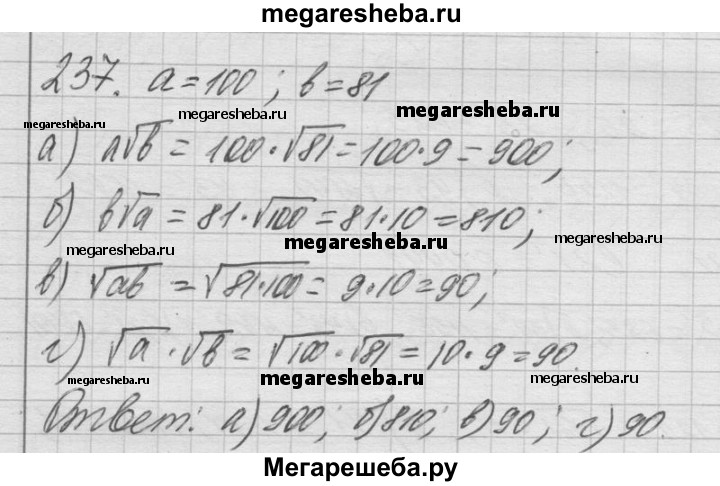 megaresheba.ru
237. a = 100 ; b = 81
megaresheba.ru megaresheba.ru megaresheba.ru
а) a√b = 100 · √81 = 100 · 9 = 900;
б) b√a = 81 · √100 = 81 · 10 = 810;
megaresheba.ru megaresheba.ru megaresheba.ru
в) √ab = √81·100 = 9 · 10 = 90;
г) √a · √b = √100 · √81 = 10 · 9 = 90.
megaresheba.ru megaresheba.ru megaresheba.ru
Ответ: а) 900; б) 810; в) 90; г) 90.
Мегарешеба.ру